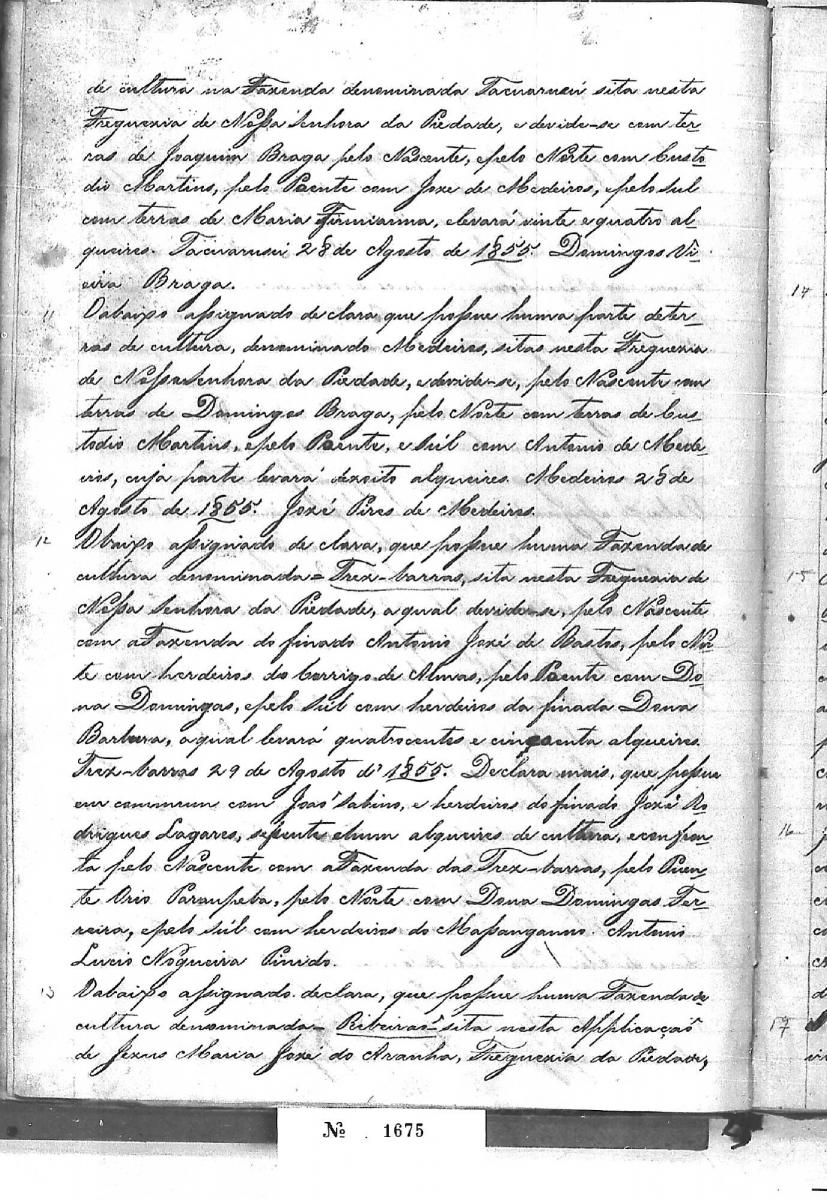 de cultura na Fazenda denominada Tacuarusú sita nesta
Freguezia de Nossa Senhora da Piedade, e devide-se com ter-
ras de Joaquim Braga pelo Nascente, epelo Norte com Custo
dio Martins, pelo Poente com Joze de Medeiros, epelo Sul
com terras de Maria Firmianna, elevará vinte equatro al-
queires. Tacuarusú 28 de Agosto de 1855. Domingos Vi-
eira Braga.
11 Oabaixo assignado declara que possue huma parte deter-
ras de cultura, denominado Medeiros, sitas nesta Freguezia
de Nossa Senhora da Piedade, edevide-se, pelo Nascente com
terras de Domingos Braga, pelo Norte com terras de Cus-
todio Martins, epelo Poente, e Súl com Antonio de Mede-
iros, cuja parte levará dezoito alqueires Medeiros 28 de
Agosto de 1855. Jozé Pires de Medeiros.
12 Obaixo assignado de clara, que possue huma Fazenda de
cultura denominada = Trez-barras, sita nesta Freguezia de
Nossa Senhora da Piedade, aqual devide-se, pelo Nascente
com aFazenda do finado Antonio Jozé de Bastos, pelo Nor-
te com herdeiros do Corrigo de Almas, pelo Poente com Do-
na Domingas, epelo Súl com herdeiros da finada Dona
Barbara, aqual levará quatrocentos e cincoenta alqueires
Trez-barras 29 de Agosto d' 1855. Declara mais, que possue
em commum com Joaõ Sabino, e herdeiros do finado Jozé Ro-
drigues Lagares, sessenta ehum alqueires de cultura, econfron-
ta pelo Nascente com aFazenda das Trez-barras, pelo Puen-
te Orio Paraupeba, pelo Norte com Dona Domingas Fer-
reira, epelo Súl com herdeiros do Massangano. Antonio
Lucio Nogueira Pinido.
13 Oabaixo assignado declara, que possue huma Fazenda de
cultura denominada = Ribeiraõ = sita nesta Applicaçaõ
de Jezus Maria Jozé do Aranha, Freguezia da Piedade,
14
15
16
17
Nº 1675